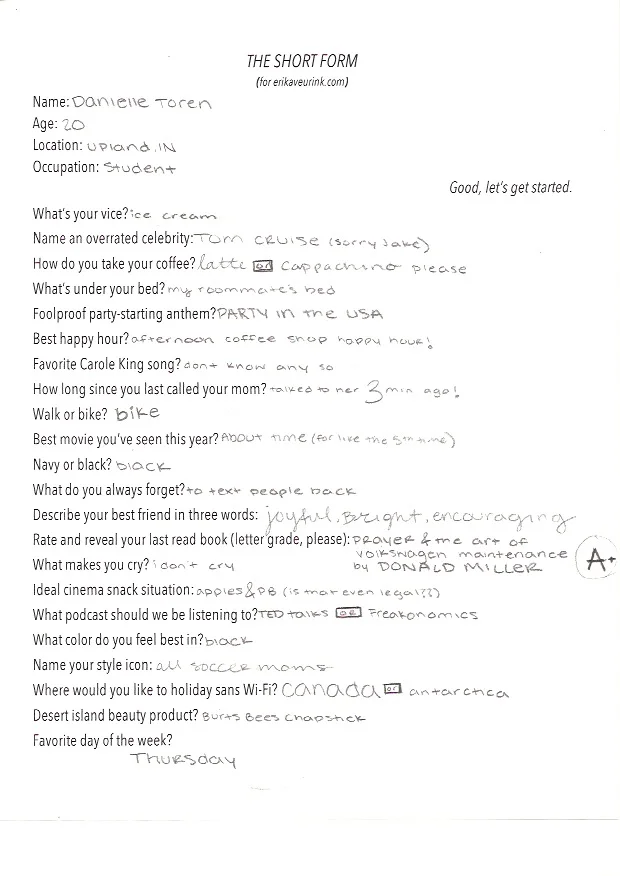 THE SHORT FORM
(for erikaveurink.com)
Name: Danielle Toren
Age: 20
Location: Upland, IN
Occupation: Student
Good, let's get started.
What's your vice? ice cream
Name an overrated celebrity: Tom Cruise (sorry Jake)
How do you take your coffee? latte or cappachino please
What's under your bed? my roommate's bed
Foolproof party-starting anthem? PARTY in the USA
Best happy hour? afternoon coffee shop happy hour!
Favorite Carole King song? don't know any so
How long since you last called your mom? talked to her 3 min ago!
Walk or bike? bike
Best movie you've seen this year? About time (for like the 5th time)
Navy or black? black
What do you always forget? to text people back
Describe your best friend in three words: joyful, Bright, encouraging
Rate and reveal your last read book (letter grade, please): PRAYER & the art of
volkswagen maintenance
by DONALD MILLER A+
What makes you cry? i don't cry
Ideal cinema snack situation: apples & PB (is that even legal??)
What podcast should we be listening to? TED talks or Freakonomics
What color do you feel best in? black
Name your style icon: all soccer moms
Where would you like to holiday sans Wi-Fi? CANADA or antarctica
Desert island beauty product? Burts Bees Chapstick
Favorite day of the week?
Thursday